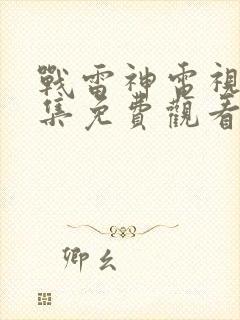 戰雷神電視
集免費觀看
卿幺